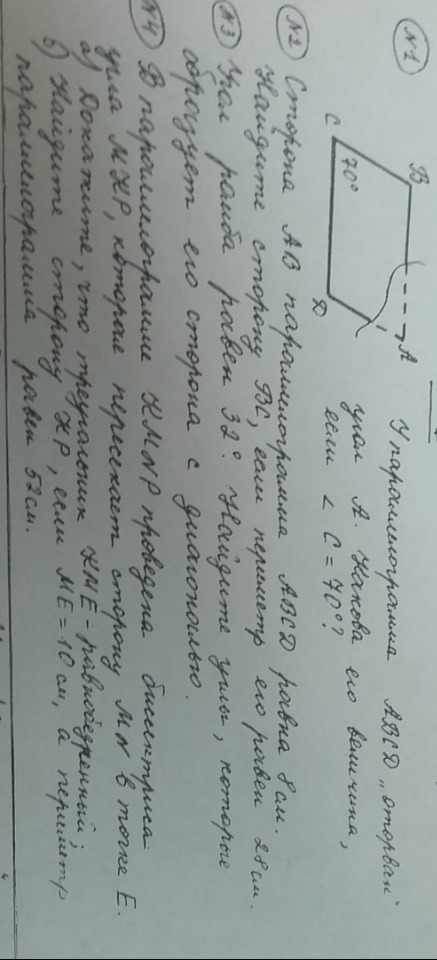 №1
B
C
70°
D
A
У параллелограмма ABCD „оторван“
угол A. Какова его величина,
если ∠ C = 70°?
№2 Сторона AB параллелограмма ABCD равна 8 см.
Найдите сторону BC, если периметр его равен 28 см.
№3 Угол ромба равен 32°. Найдите углы, которые
образует его сторона с диагональю.
№4 В параллелограмме KMNP проведена биссектриса
угла MKP, которая пересекает сторону MN в точке E.
а) Докажите, что треугольник KME - равнобедренный;
б) Найдите сторону KP, если ME = 10 см, а периметр
параллелограмма равен 52 см.